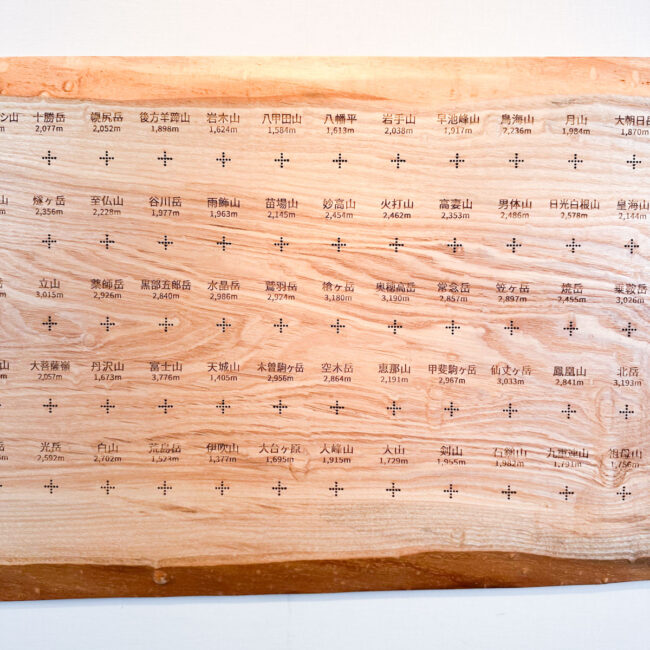 十勝岳 幌尻岳 後方羊蹄山 岩木山 八甲田山 八幡平 岩手山 早池峰山 鳥海山 月山 大朝日岳
2,077m 2,052m 1,898m 1,624m 1,584m 1,613m 2,038m 1,917m 2,236m 1,984m 1,870m
燧ヶ岳 至仏山 谷川岳 雨飾山 苗場山 妙高山 火打山 高妻山 男体山 日光白根山 皇海山
2,356m 2,228m 1,977m 1,963m 2,145m 2,454m 2,462m 2,353m 2,486m 2,578m 2,144m
立山 薬師岳 黒部五郎岳 水晶岳 鷲羽岳 槍ヶ岳 奥穂高岳 常念岳 笠ヶ岳 焼岳 乗鞍岳
3,015m 2,926m 2,840m 2,986m 2,924m 3,180m 3,190m 2,857m 2,897m 2,455m 3,026m
大菩薩嶺 丹沢山 富士山 天城山 木曽駒ヶ岳 空木岳 恵那山 甲斐駒ヶ岳 仙丈ヶ岳 鳳凰山 北岳
2,057m 1,673m 3,776m 1,405m 2,956m 2,864m 2,191m 2,967m 3,033m 2,841m 3,193m
光岳 白山 荒島岳 伊吹山 大台ヶ原 大峰山 大山 剣山 石鎚山 九重連山 祖母山
2,592m 2,702m 1,523m 1,377m 1,695m 1,915m 1,729m 1,955m 1,982m 1,791m 1,756m